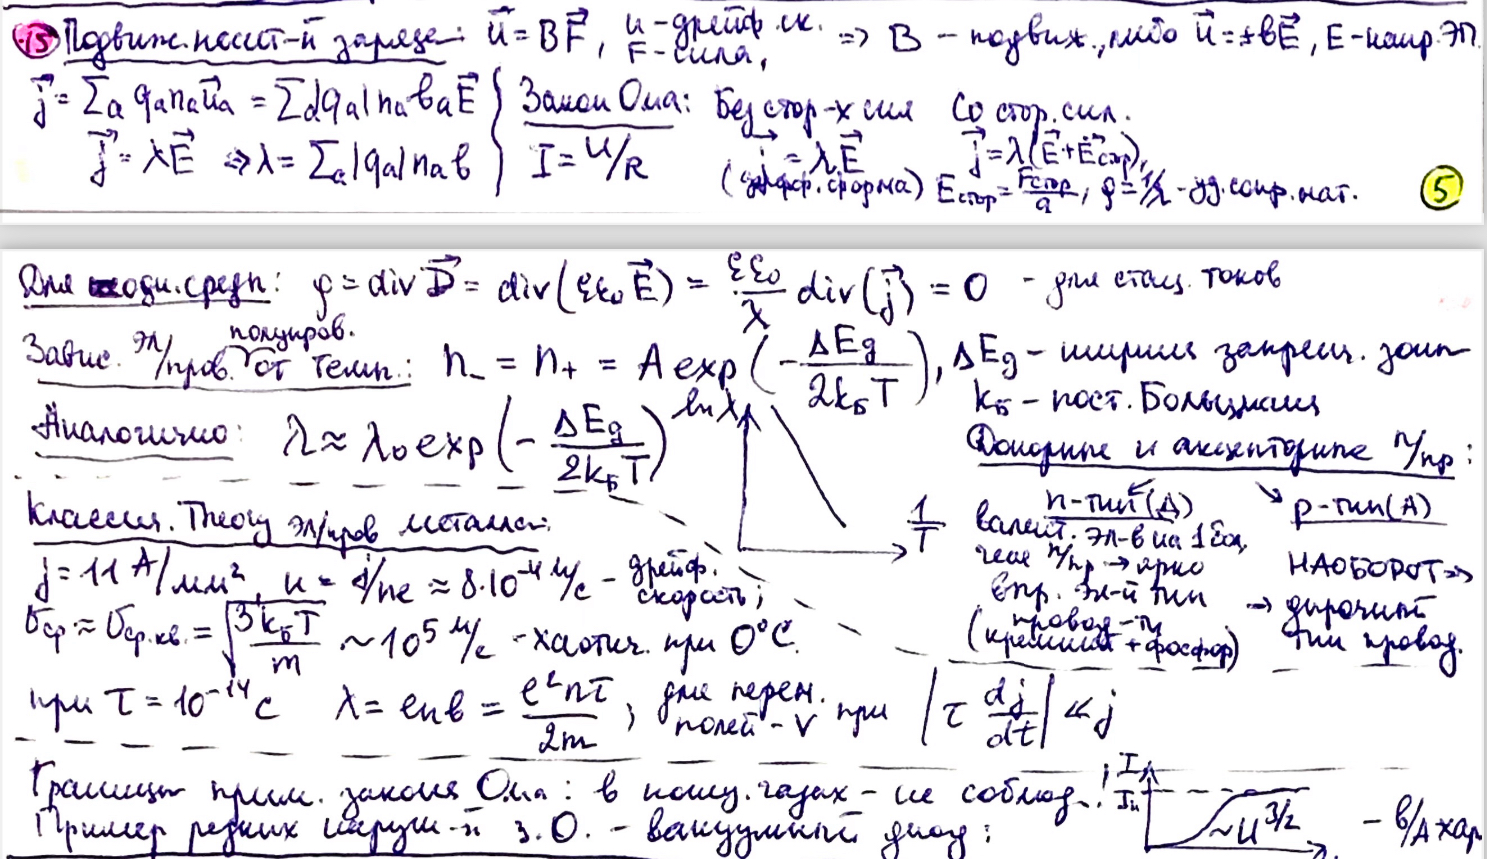 15 Подвиж. носит-й заряда: u⃗ = BF⃗, u - дрейф. ск. F - сила, => B - подвиж., либо u⃗ = ±вE⃗, E - напр. ЭП.
j⃗ = Σₐ qₐnₐu⃗ₐ = Σ|qₐ|nₐвₐE⃗ } Закон Ома: Без стор-х сил Со стор. сил.
j⃗ = λE⃗ => λ = Σₐ|qₐ|nₐв } I = U/R j⃗ = λE⃗ j⃗ = λ(E⃗ + E⃗стор),
(дифф. форма) Eстор = Fстор/q, ρ = 1/λ - уд. сопр. мат. 5
Для одн. среды: ρ = div D⃗ = div(εε₀E⃗) = εε₀/λ div(j⃗) = 0 - для стац. токов
Завис. эл/пров. полупров. от темп.: n₋ = n₊ = A exp(-ΔEg/2kБT), ΔEg - ширина запрещ. зоны
kБ - пост. Больцмана
Аналогично: λ ≈ λ₀ exp(-ΔEg/2kБT) ln λ 1/T
Донорные и акцепторные п/пр:
n-тип (Д) p-тип (А)
валент. эл-в на 1 бол. чем п/пр → ярко выр. эл-й тип провод-ти (кремний + фосфор)
НАОБОРОТ => → дырочный тип провод.
Классич. Theory эл/пров металлов:
j = 11 А/мм², u = j/ne ≈ 8·10⁻⁴ м/с - дрейф. скорость;
υср ≈ υср.кв. = √(3kБT/m) ~ 10⁵ м/с - хаотич. при 0°C.
при τ = 10⁻¹⁴ с λ = enв = e²nτ/2m ; для перем. полей - V при |τ dj/dt| ≪ j
Границы прим. закона Ома: в иониз. газах - не соблюд.!
Пример редких наруш-й з.О. - вакуумный диод: I Iн ~U^3/2 - в/А хар